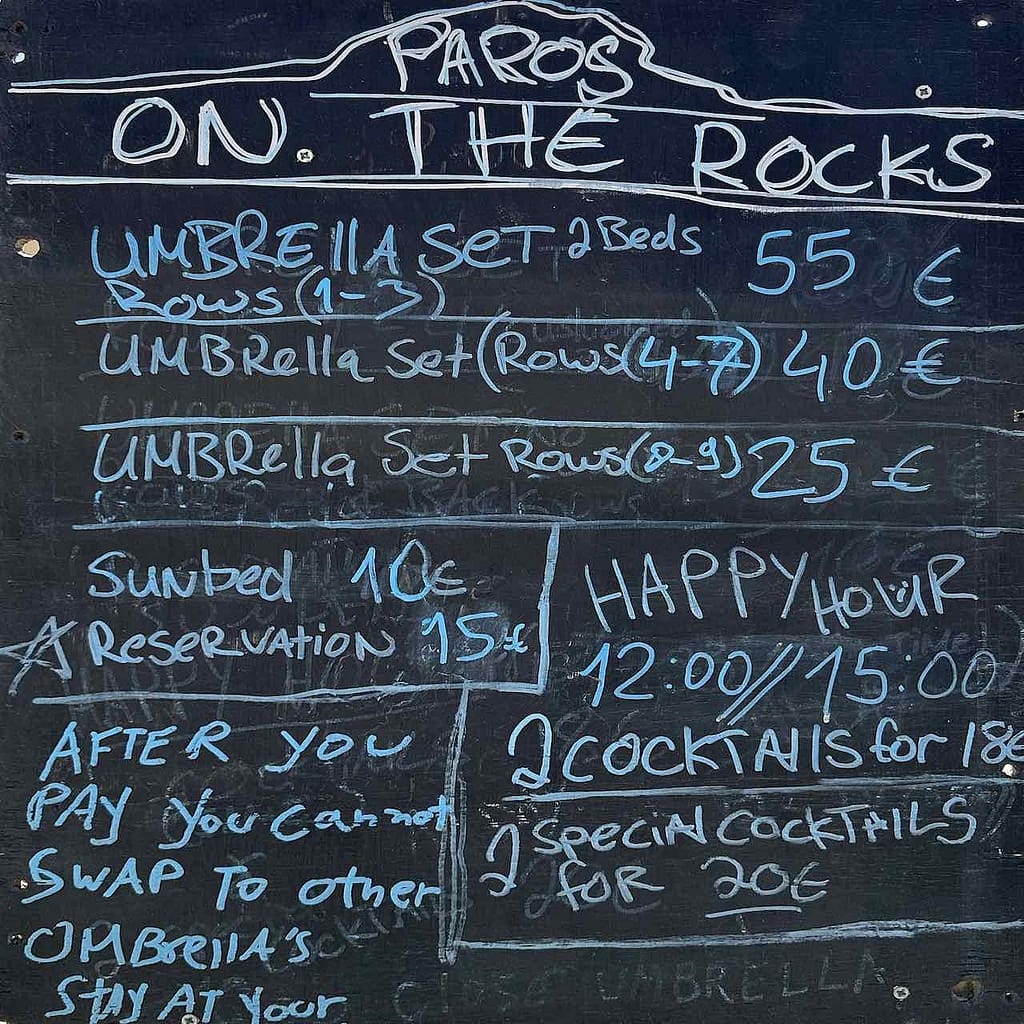 PAROS
ON. THE ROCKS
UMBRELLA SET 2 Beds 55 €
Rows (1-3)
UMBRella Set (Rows (4-7) 40 €
UMBRella Set Rows (8-9) 25 €
Sunbed 10€
ReSeRVATION 15€
HAPPY HOUR
12:00//15:00
2 COCKTAIlS for 18€
2 SPeciAl COCKTAILS
foR 20€
AFTER YOU
PAY You Cannot
SWAP To other
UMBrellA's
StAY AT Your
Close UMBRELLA